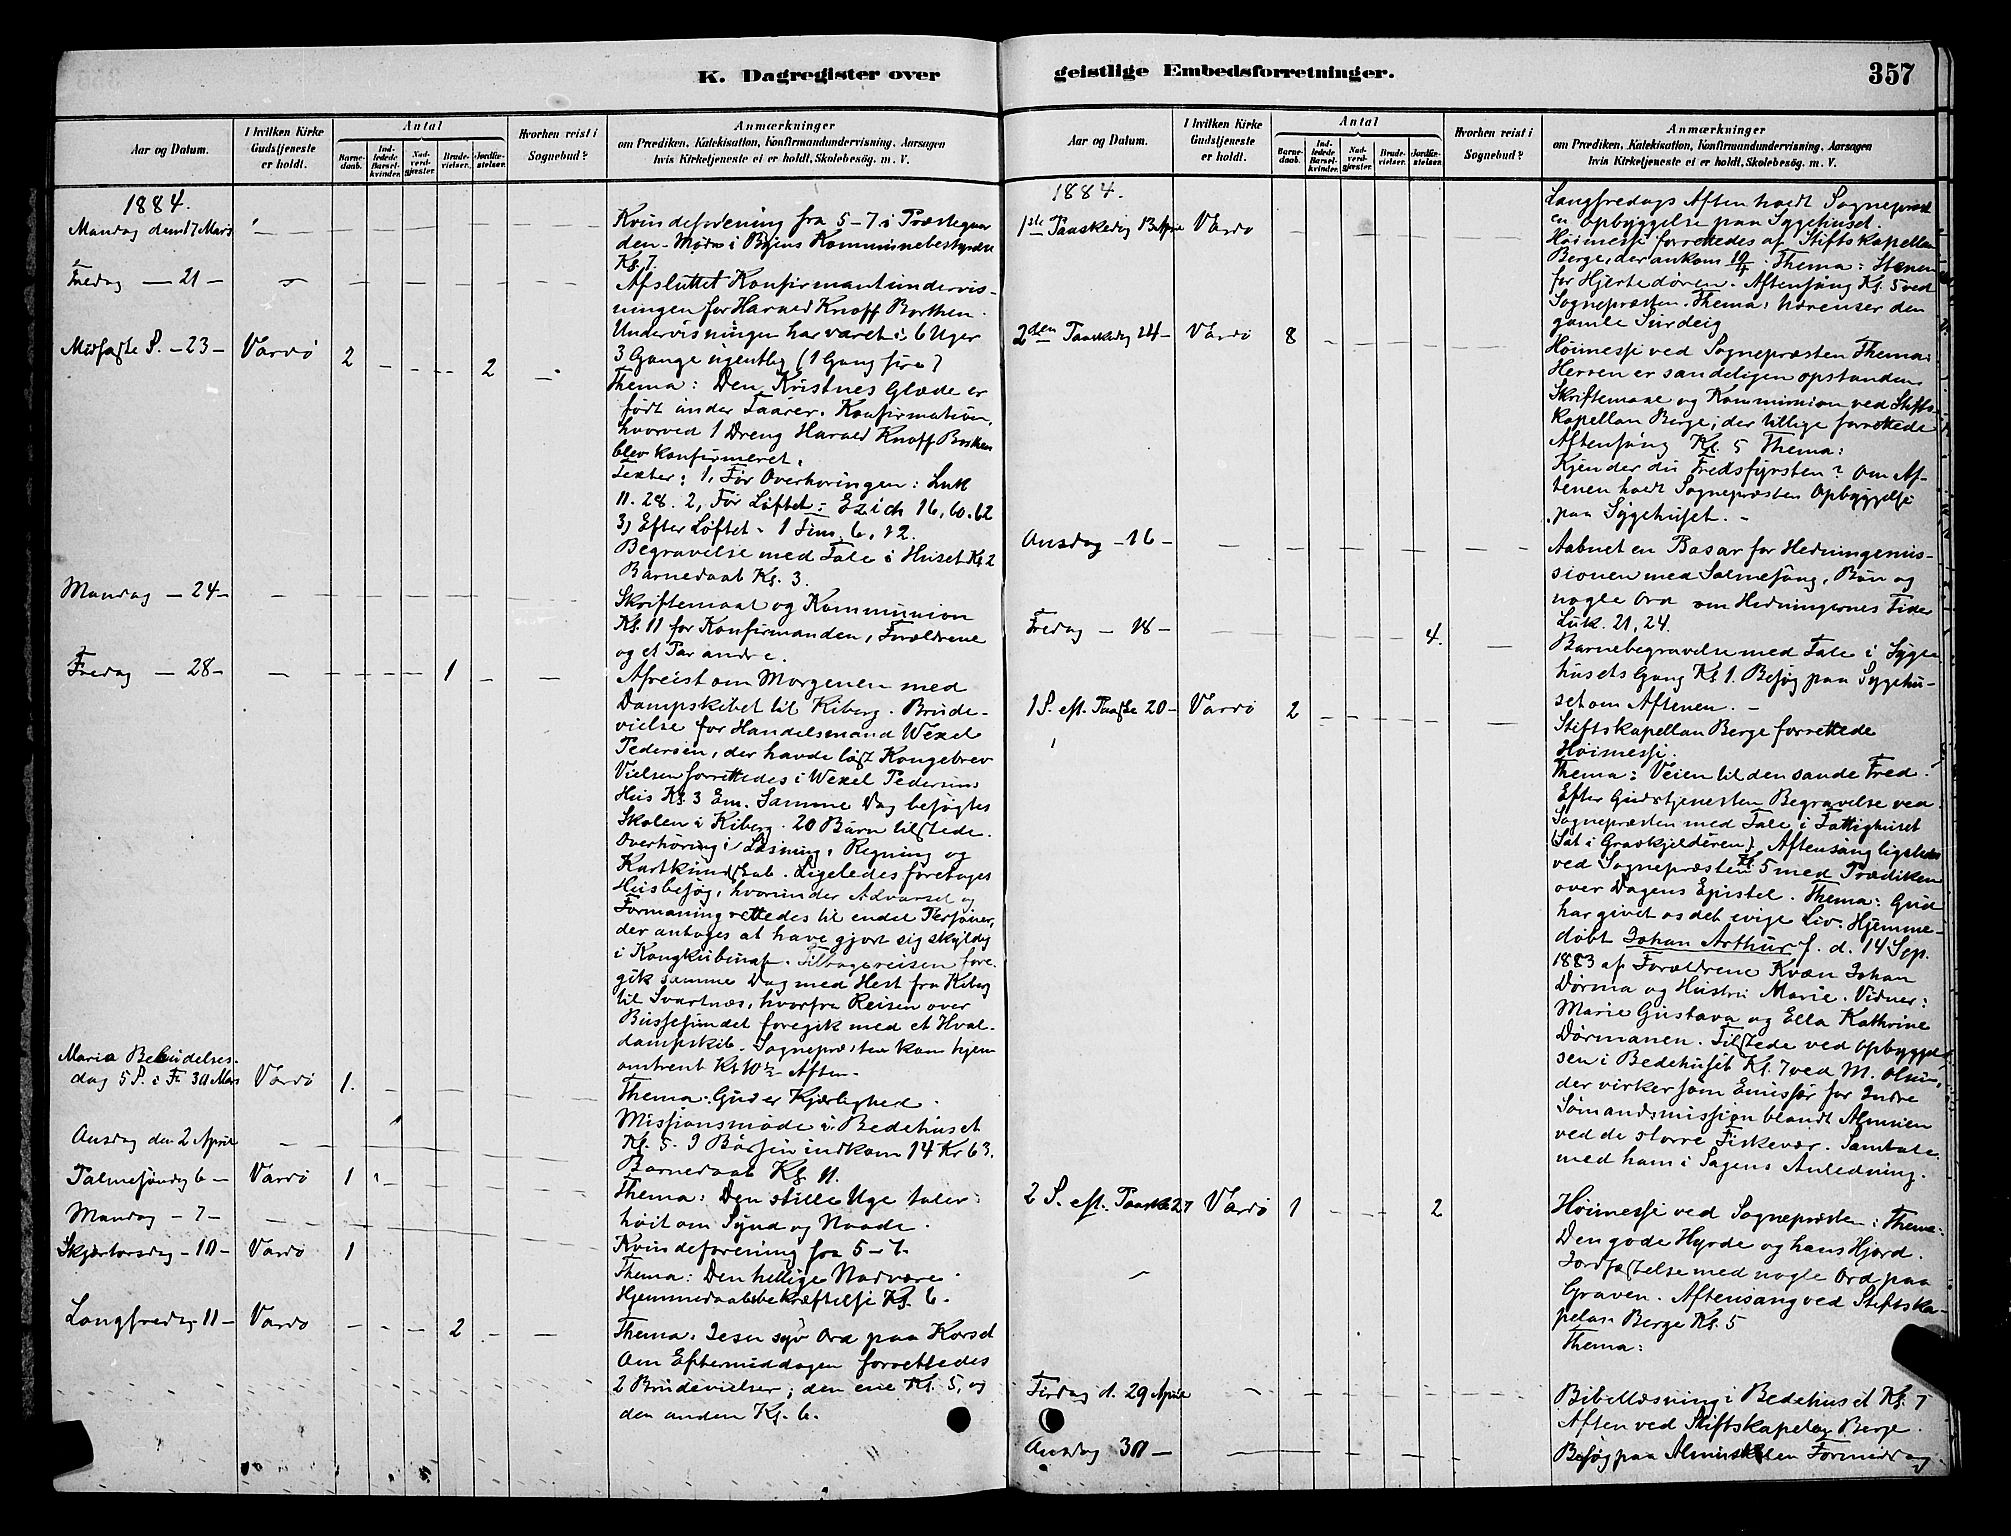 K. Dagregister over
geistlige Embedsforretninger.
357
Aar og Datum.
I hvilken Kirke
Gudstjeneste
er holdt.
Antal
Barne-
daab.
Ind-
ledede
Barsel-
kvinder.
Nad-
verd-
gjæster.
Brude-
vielser.
Jordfæ-
stelser.
Hvorhen reist i
Sognebud?
Anmærkninger
om Prædiken, Katekisation, Konfirmandundervisning, Aarsagen
hvis Kirketjeneste ei er holdt, Skolebesøg. m. V.
1884.
Mandag den 17 Mars
Kvindeforening fra 5-7 i Præstegaar
den - Møde i Byens Kommunebestyrelse
Kl. 7.
Fredag - 21 -
Afsluttet Konfirmantundervis-
ningen for Harald Knoff Borthen.
Undervisningen har været i 6 Uger
3 Gange ugentlig (1 Gang fire)
Midfaste S. - 23 - Vardø 2 - - - 2 -
Thema: Den Kristnes Glæde er
født under Taarer. Konfirmation,
hvorved 1 Dreng Harald Knoff Borthen
blev konfirmeret.
Texter: 1, Før Overhøringen: Luk
11. 28. 2, Før Løftet: Ezech 16, 60. 62
3) Efter Løftet - 1 Tim. 6, 12.
Begravelse med Tale i Huset Kl 2
Barnedaab Kl. 3.
Mandag - 24 -
Skriftemaal og Kommunion
Kl. 11 for Konfirmanden, Forældrene
og et Par andre.
Fredag - 28 - - - - - 1 - -
Afreist om Morgenen med
Dampskibet til Kiberg. Brude-
vielse for Handelsmand Wexel
Pedersen, der havde løst Kongebrev
Vielsen forrettedes i Wexel Pedersens
Hus Kl. 3 Em. Samme Dag besøgtes
Skolen i Kiberg. 20 Børn tilstede.
Overhøring i Læsning, Regning og
Kartkundskab. Ligeledes foretoges
Husbesøg, hvorunder Advarsel og
Formaning rettedes til endel Personer,
der antages at have gjort sig skyldig
i Konkubinat. Tilbagereisen fore-
gik samme Dag med Hest fra Kiberg
til Svartnæs, hvorfra Reisen over
Bussesundet foregik med et Hval-
dampskib. Sognepræsten kom hjem
omtrent Kl 10½ Aften.
Maria Bebudelses-
dag 5 S. i F. 30 Mars Vardø 1.
Thema: Gud er Kjærlighed.
Onsdag den 2 April
Missionsmøde i Bedehuset
Kl. 5. I Bøssen indkom 14 Kr 63.
Barnedaab Kl. 11.
Palmesøndag 6 - Vardø 1
Thema: Den stille Uge taler
høit om Synd og Naade.
Mandag - 7 -
Kvindeforening fra 5-7.
Skjærtorsdag - 10 - Vardø 1
Thema: Den hellige Nadvere.
Hjemmedaabsbekræftelse Kl. 6.
Langfredag 11 - Vardø - - - 2 - -
Thema: Jesu syv Ord paa Korset
Om Eftermiddagen forrettedes
2 Brudevielser; den ene Kl. 5, og
den anden Kl. 6.
Aar og Datum.
I hvilken Kirke
Gudstjeneste
er holdt.
Antal
Barne-
daab.
Ind-
ledede
Barsel-
kvinder.
Nad-
verd-
gjæster.
Brude-
vielser.
Jordfæ-
stelser.
Hvorhen reist i
Sognebud?
Anmærkninger
om Prædiken, Katekisation, Konfirmandundervisning, Aarsagen
hvis Kirketjeneste ei er holdt, Skolebesøg. m. V.
1884.
Langfredags Aften holdt Sognepræst
en Opbyggelse paa Sygehuset.
1ste Paaskedag April Vardø
Høimesse forrettedes af Stiftskapellan
Berge, der ankom 10/4. Thema: Stenen
for Hjertedøren. Aftensang Kl. 5 ved
Sognepræsten. Thema: Udrenser den
gamle Surdeig
2den Paaskedag 14 - Vardø 8
Høimesse ved Sognepræsten Thema:
Herren er sandeligen opstanden
Skriftemaal og Kommunion ved Stifts-
kapellan Berge, der tillige forrettede
Aftensang Kl. 5 Thema:
Kjender du Fredsfyrsten? Om Af-
tenen holdt Sognepræsten Opbyggelse
paa Sygehuset. -
Onsdag - 16 -
Aabnet en Basar for Hedningemis-
sionen med Salmesang, Bøn og
nogle Ord om Hedningernes Tider
Luk. 21, 24.
Fredag - 18 - 4.
Barnebegravelse med Tale i Syge
husets Gang Kl 1. Besøg paa Sygehu-
set om Aftenen. -
1 S. eft. Paaske 20 - Vardø 2
Stiftskapellan Berge forrettede
Høimesse.
Thema: Veien til den sande Fred.
Efter Gudstjenesten Begravelse ved
Sognepræsten med Tale i Fattighuset
(Sat i Gravkjelderen). Aftensang ligeledes
ved Sognepræsten Kl. 5 med Prædiken
over Dagens Epistel. Thema: Gud
har givet os det evige Liv. Hjemme-
døbt Johan Arthur f. d. 14 Sep.
1883 af Forældrene Kvæn Johan
Dørma og Hustru Marie. Vidner:
Marie Gustava og Ella Kathrine
Dørmanen. Tilstede ved Opbyggel-
sen i Bedehuset Kl. 7 ved M. Olsen,
der virker som Emissær for Indre
Sømandsmission blandt Almuen
ved de større Fiskevær. Samtale
med ham i Sagens Anledning.
2 S. eft. Paaske 27 Vardø 1 - - - 2
Høimesse ved Sognepræsten: Thema:
Den gode Hyrde og hans Hjord.
Jordfæstelse med nogle Ord paa
Graven. Aftensang ved Stiftska-
pelan Berge Kl. 5
Thema:
Tirsdag d. 29 April
Bibellæsning i Bedehuset Kl. 7
Aften ved Stiftskapelan Berge.
Onsdag 30 -
Besøg paa Almueskolen Formiddag